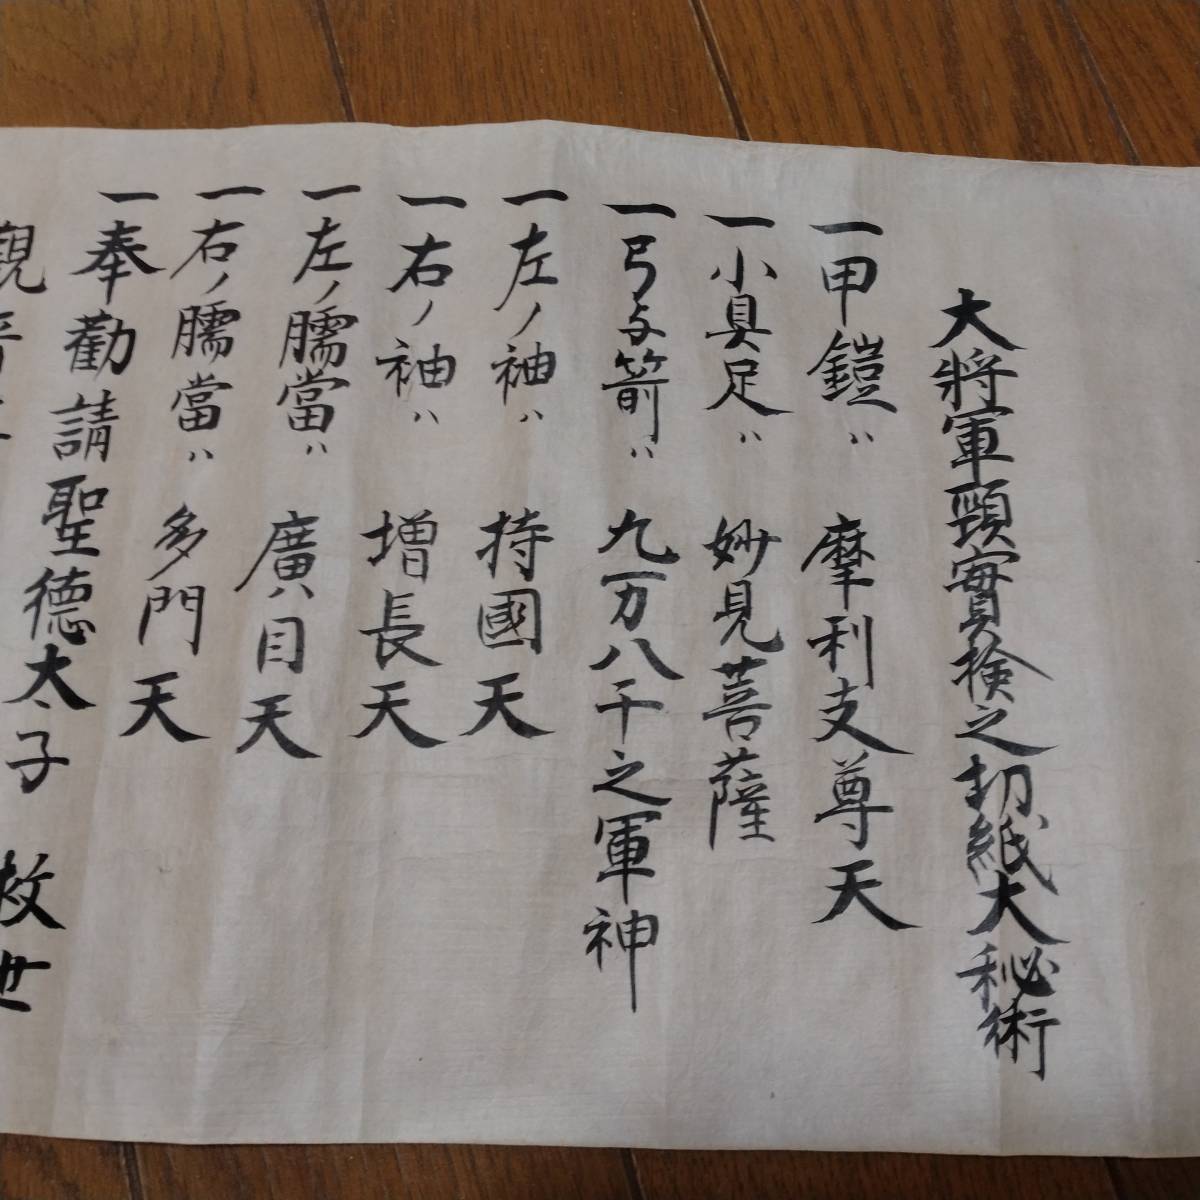 大將軍頸實検之切紙大秘術
一甲鎧ハ 摩利支尊天
一小具足ハ 妙見菩薩
一弓与箭ハ 九万八千之軍神
一左ノ袖ハ 持國天
一右ノ袖ハ 増長天
一左ノ臑當ハ 廣目天
一右ノ臑當ハ 多門天
一奉勸請聖德太子 救世
觀音